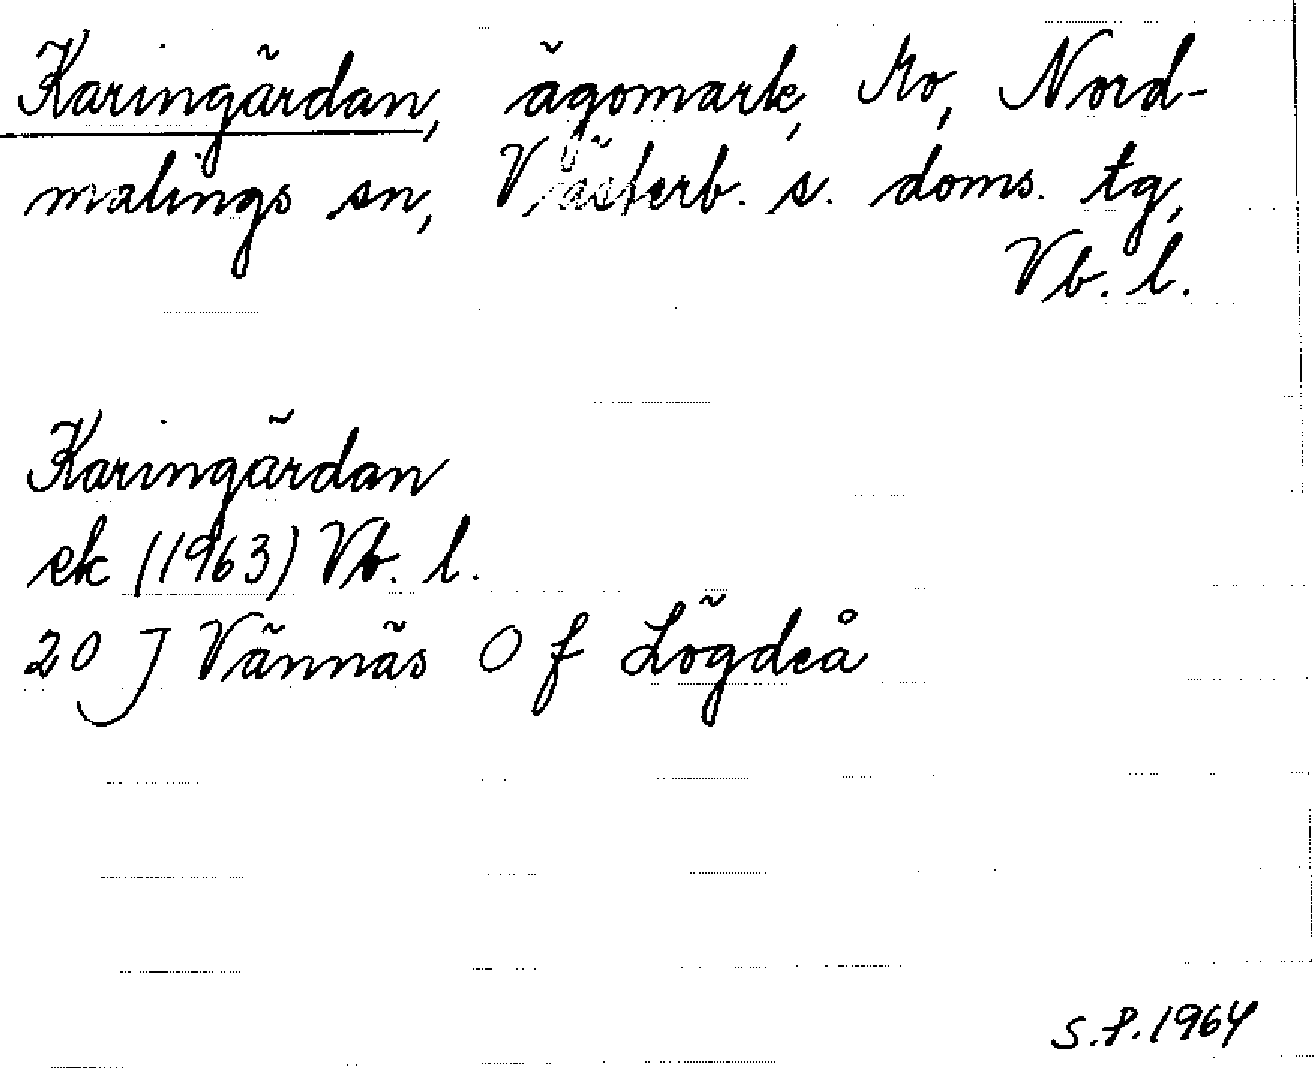 Karingärdan, ägomark, Mo, Nord-
malings sn, Västerb. s. doms. tg,
Vb. l.
Karingärdan
ek (1963) Vb. l.
20 J Vännäs 0 f Lögdeå
S.P. 1964